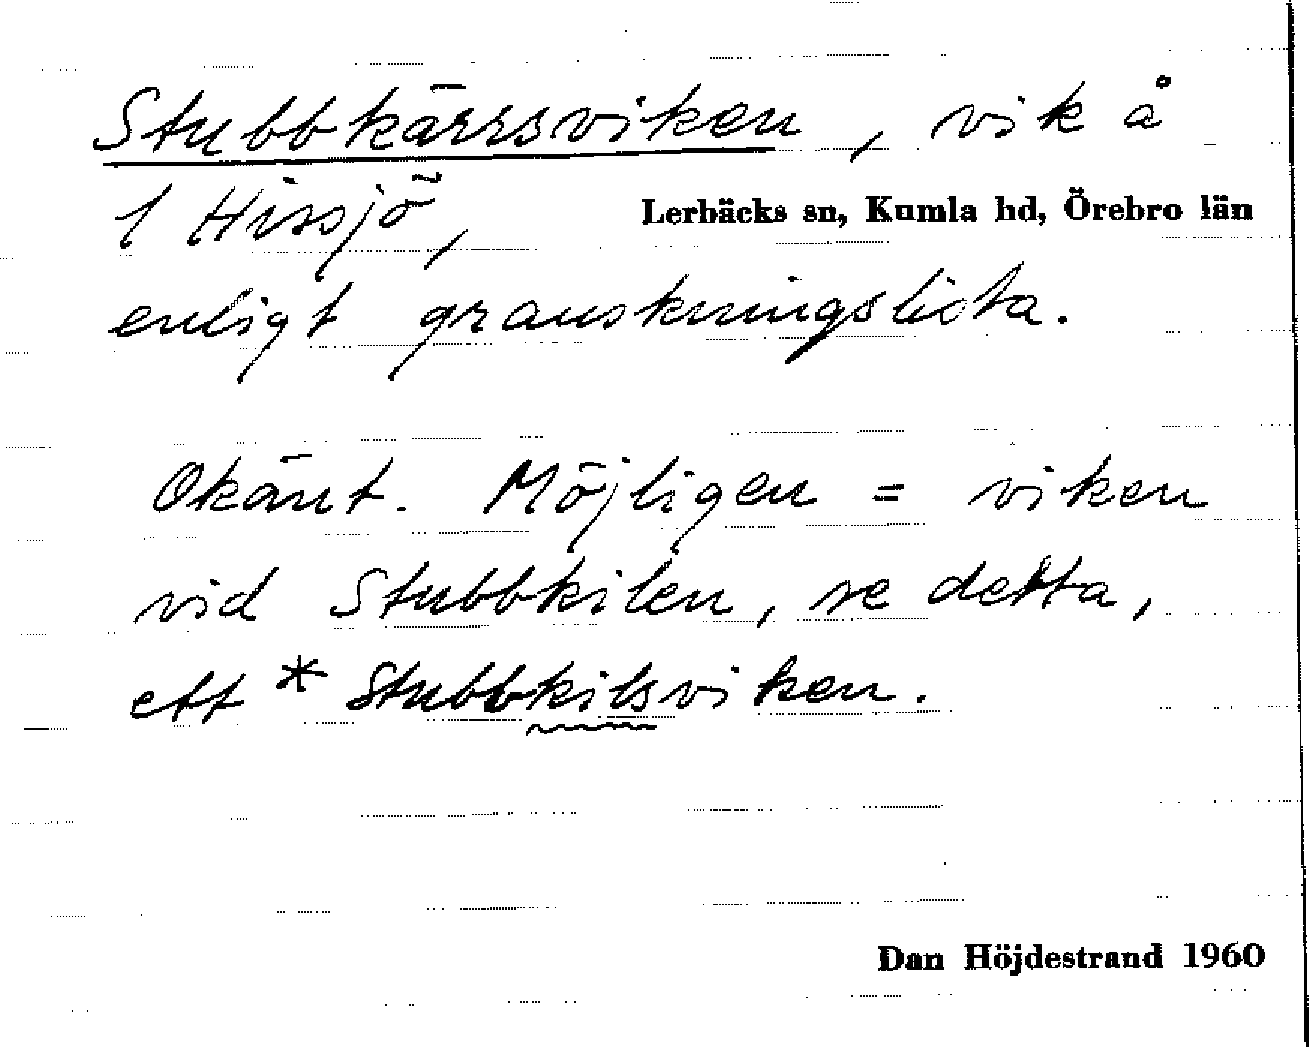 Stubbkärrsviken, vik å
1 Hissjö,
Lerbäcks sn, Kumla hd, Örebro län
enligt granskningslista.
Okänt. Möjligen = viken
vid Stubbkilen, se detta,
ett * Stubbkilsviken.
Dan Höjdestrand 1960